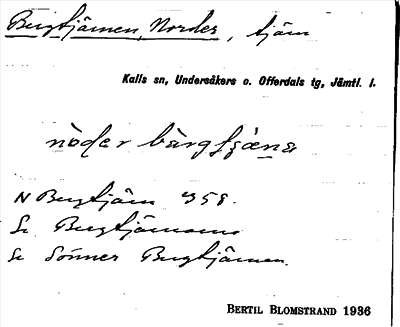 Bergtjärnen, Norder, tjärn
Kalls sn, Undersåkers o. Offerdals tg, Jämtl. l.
nòder bàrgtjæna
N Bergtjärn 358.
Se Bergtjärnarna
Se Sönner Bergtjärnen.
BERTIL BLOMSTRAND 1936